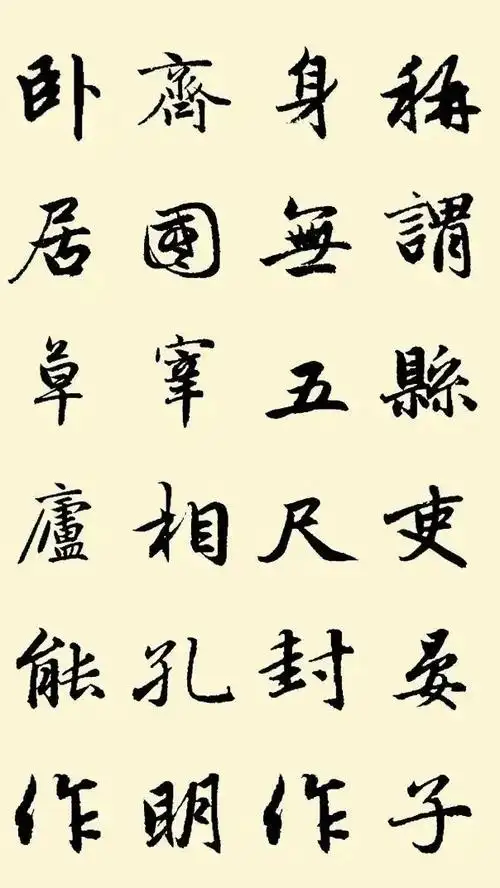 稱謂縣吏晏子
身無五尺封作
齊國宰相孔明
卧居草廬能作